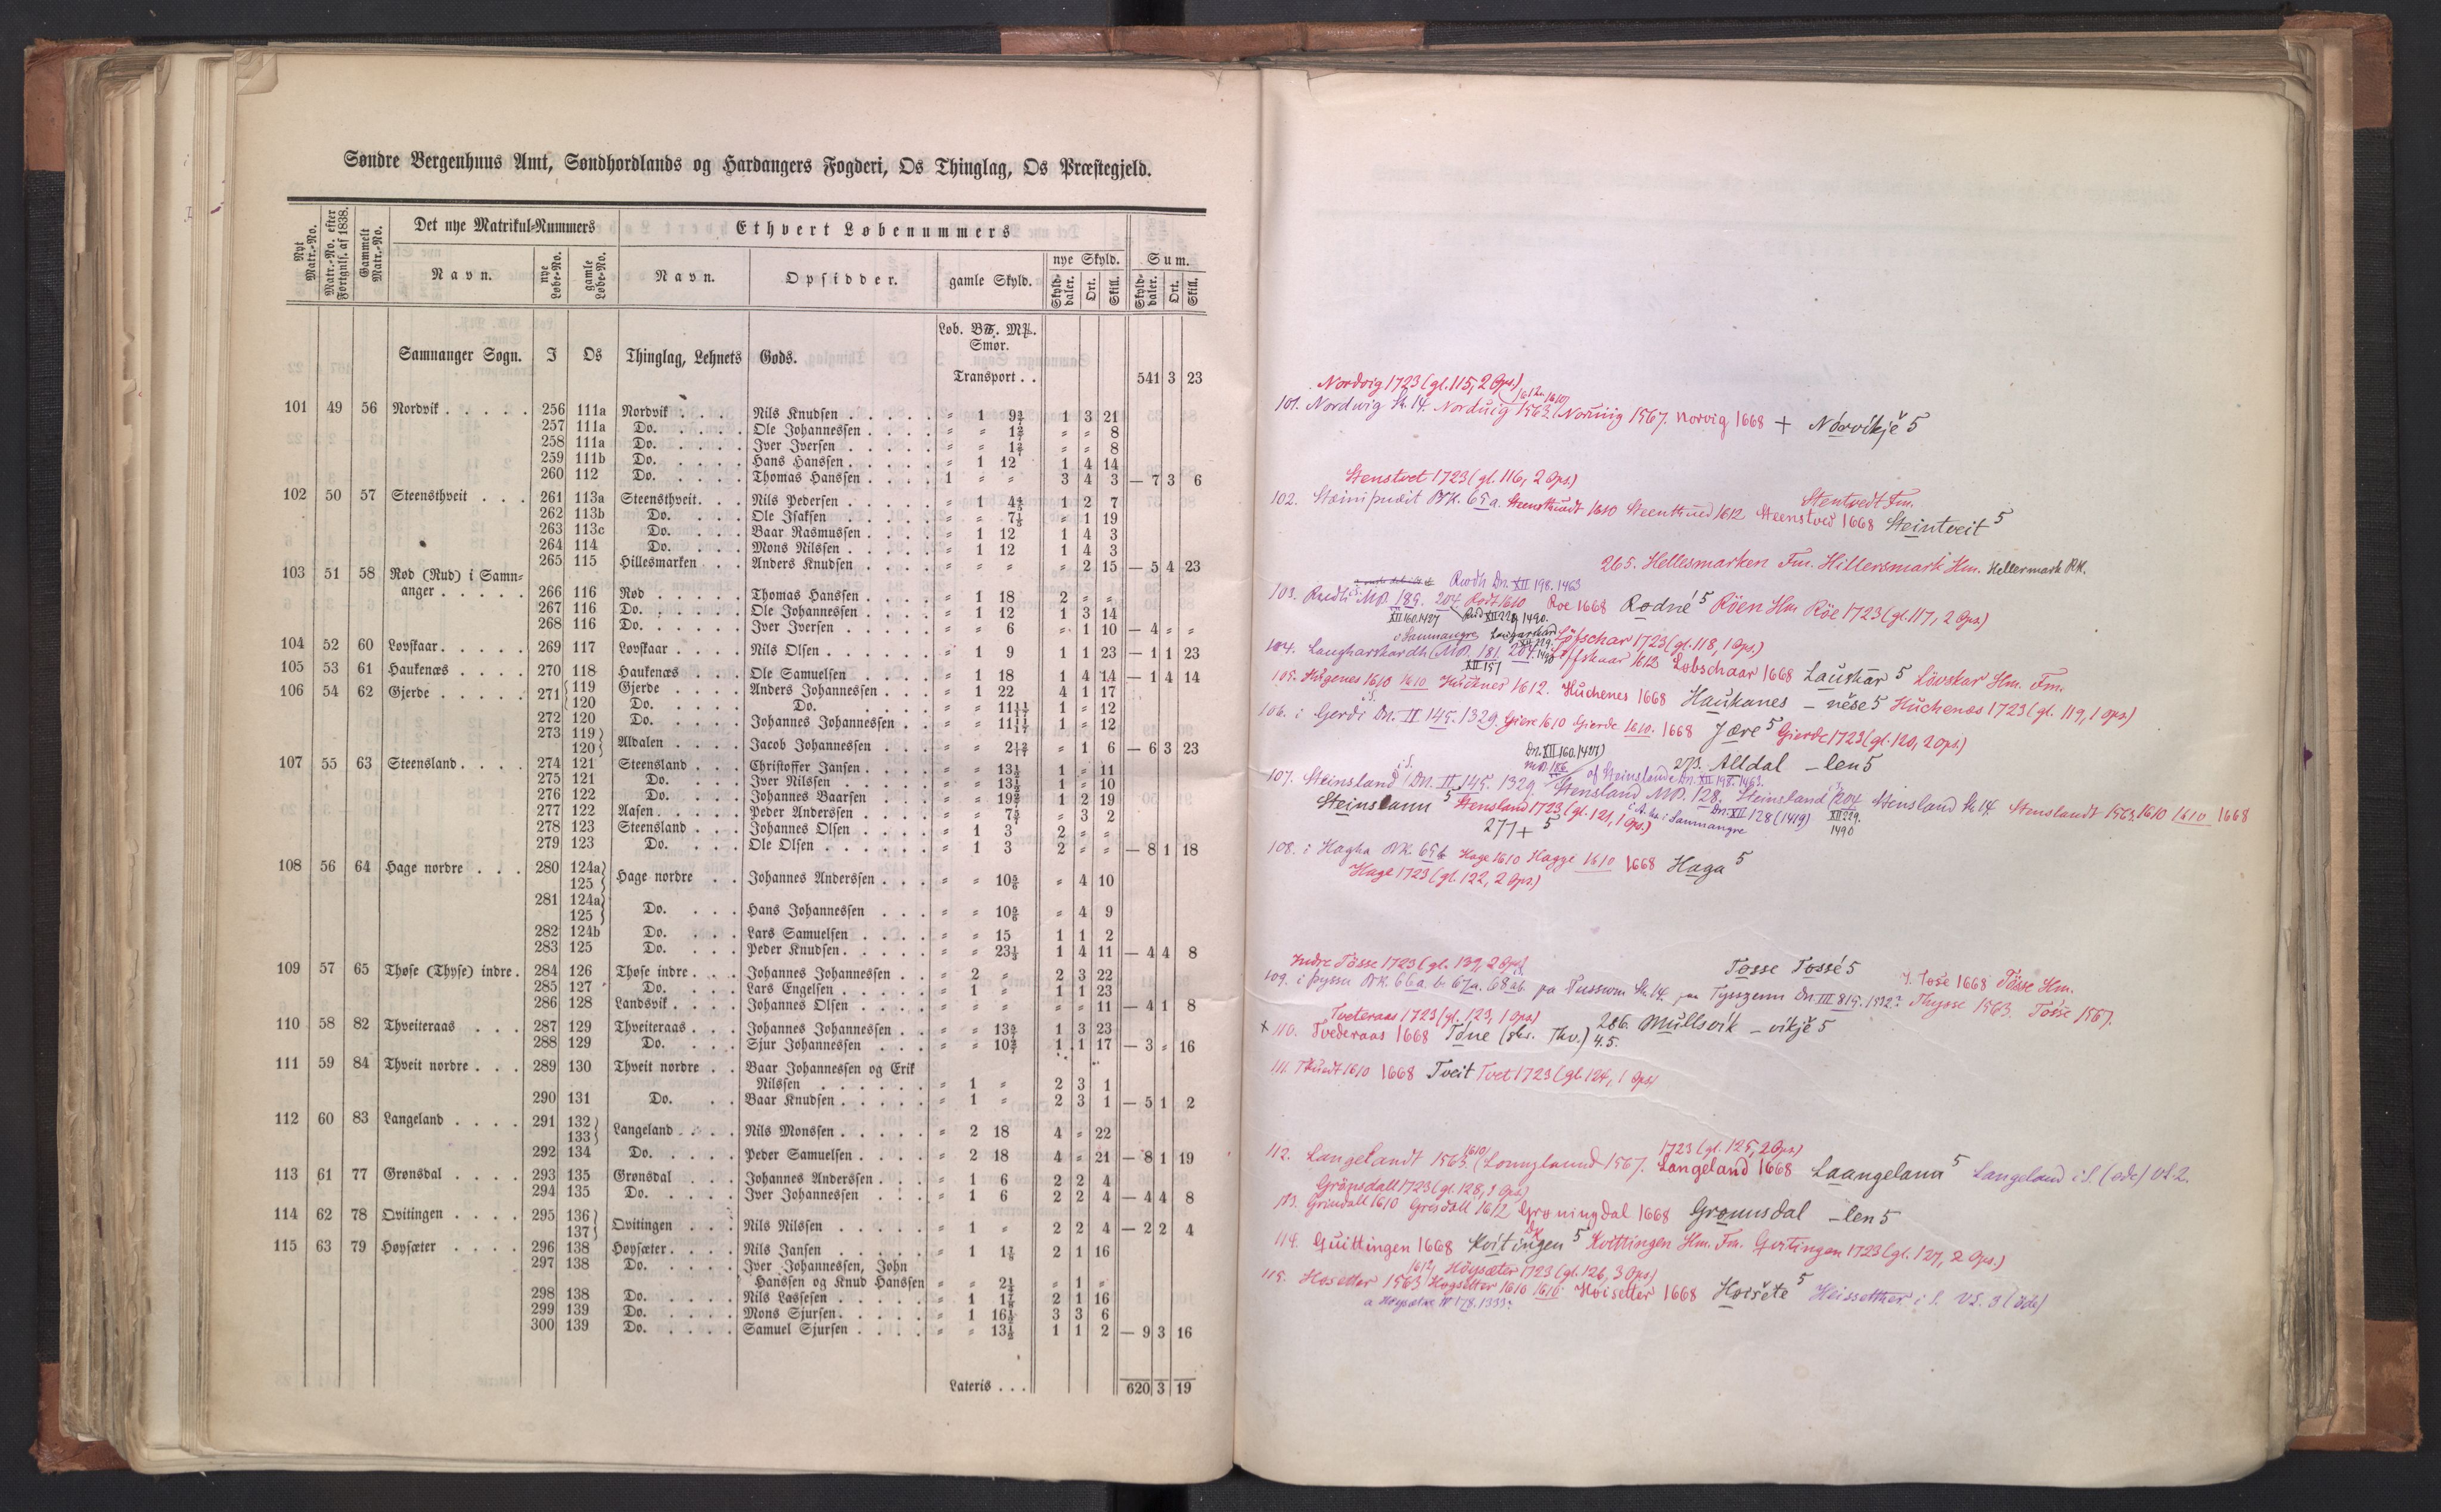 Søndre Bergenhuus Amt, Søndhordlands og Hardangers Fogderi, Os Thinglag, Os Præstegjeld.
Nyt Matr.-No. | Matr.-No. efter Fortgnls. af 1838. | Gammelt Matr.-No. | Det nye Matrikul-Nummers | Ethvert Løbenummers
Navn. | nye Løbe-No. | gamle Løbe-No. | Navn. | Opsidder. | gamle Skyld. | nye Skyld. | Sum.
Skylddaler. | Ort. | Skill. | Skylddaler. | Ort. | Skill.
Løb. B℔. M℔.
Samnanger Sogn. I Os Thinglag, Lehnets Gods. Smør.
Transport . . 541 3 23
101 49 56 Nordvik . . . . . 256 111a Nordvik . . . Nils Knudsen . . . . . " 1 9 3/7 1 3 21
257 111a Do. . . . . Ole Johannessen . . . . " " 1 2/7 " " 8
258 111a Do. . . . . Iver Iversen . . . . . " " 1 2/7 " " 8
259 111b Do. . . . . Hans Hanssen . . . . . " 1 12 1 4 14
260 112 Do. . . . . Thomas Hanssen . . . . 1 " " 3 4 3 — 7 3 6
102 50 57 Steensthveit . . . 261 113a Steensthveit. . . Nils Pedersen . . . . . " 1 4 4/5 1 2 7
262 113b Do. . . . Ole Isaksen . . . . . " " 7 1/5 " 1 19
263 113c Do. . . . Baar Rasmussen . . . . " 1 12 1 4 3
264 114 Do. . . . Mons Nilssen . . . . . " 1 12 1 4 3
265 115 Hillesmarken . . Anders Knudsen . . . . " " " " 2 15 — 5 4 23
103 51 58 Rød (Rud) i Samn-
anger . . . . . 266 116 Rød . . . . . Thomas Hanssen . . . . " 1 18 2 " "
267 116 Do. . . . . . Ole Johannessen . . . . " 1 12 1 3 14
268 116 Do. . . . . . Iver Iversen . . . . . " " 6 " 1 10 — 4 " "
104 52 60 Løvskaar. . . . . 269 117 Løvskaar . . . . Nils Olsen . . . . . . " 1 9 1 1 23 — 1 1 23
105 53 61 Haukenæs . . . . 270 118 Haukenæs . . . Ole Samuelsen . . . . " 1 18 1 4 14 — 1 4 14
106 54 62 Gjerde . . . . . 271 119 Gjerde . . . . Anders Johannessen . . . " 1 22 4 1 17
120 Do. . . . . Do. . . . . " " 11 11/17 1 " 12
272 120 Do. . . . . Johannes Johannessen . . " " 11 11/17 1 " 12
273 119
120 Aldalen . . . . Jacob Johannessen . . . " " 2 12/17 " 1 6 — 6 3 23
107 55 63 Steensland. . . . 274 121 Steensland . . . Christoffer Jansen . . . . " " 13 1/2 1 " 11
275 121 Do. . . . Iver Nilssen . . . . . " " 13 1/2 1 " 10
276 122 Do. . . . Johannes Baarsen . . . " " 19 2/7 1 2 19
277 122 Aasen. . . . . Peder Anderssen . . . . " " 7 5/7 " 3 2
278 123 Steensland . . . Johannes Olsen . . . . " 1 3 2 " "
279 123 Do. . . . Ole Olsen . . . . . . " 1 3 2 " " — 8 1 18
108 56 64 Hage nordre . . . 280 124a
125 Hage nordre . . Johannes Anderssen . . . " " 10 5/6 " 4 10
281 124a
125 Do. . . . Hans Johannessen . . . " " 10 5/6 " 4 9
282 124b Do. . . . Lars Samuelsen . . . . " " 15 1 1 2
283 125 Do. . . . Peder Knudsen . . . . . " " 23 1/3 1 4 11 — 4 4 8
109 57 65 Thøse (Thyse) indre. 284 126 Thøse indre. . . Johannes Johannessen . . " 2 " 2 3 22
285 127 Do. . . . Lars Engelsen . . . . . " 1 " 1 1 23
286 128 Landsvik . . . . Johannes Olsen . . . . " " " " " 11 — 4 1 8
110 58 82 Thveiteraas . . . 287 129 Thveiteraas . . . Johannes Johannessen . . " " 13 5/7 1 3 23
288 129 Do. . . . Sjur Johannessen . . . " " 10 2/7 1 1 17 — 3 " 16
111 59 84 Thveit nordre . . . 289 130 Thveit nordre . . Baar Johannessen og Erik
Nilssen . . . . . . " 1 " 2 3 1
290 131 Do. . . Baar Knudsen . . . . . " 1 " 2 3 1 — 5 1 2
112 60 83 Langeland . . . . 291 132
133 Langeland . . . . Nils Monssen . . . . . " 2 18 4 " 22
292 134 Do. . . . . Peder Samuelsen . . . . " 2 18 4 " 21 — 8 1 19
113 61 77 Grønsdal . . . . 293 135 Grønsdal . . . Johannes Anderssen . . . " 1 6 2 2 4
294 135 Do. . . . . Iver Johannessen . . . " 1 6 2 2 4 — 4 4 8
114 62 78 Qvitingen . . . . 295 136
137 Qvitingen . . . Nils Nilssen . . . . . " 1 " 2 2 4 — 2 2 4
115 63 79 Høysæter . . . . 296 138 Høysæter. . . . Nils Jansen . . . . . " 1 1 7/8 2 1 16
297 138 Do. . . . . Iver Johannessen, John
Hanssen og Knud Hanssen " " 2 1/4 " 1 "
298 138 Do. . . . . Nils Lassesen . . . . . " 1 1 7/8 2 1 16
299 139 Do. . . . . Mons Sjursen . . . . . " 1 16 1/2 3 3 6
300 139 Do. . . . . Samuel Sjursen . . . . " " 13 1/2 1 1 2 — 9 3 16
Lateris . . . 620 3 19
Nordvig 1723 (gl. 115, 2 Ops.)
101. Nordwig St. 14. Norduig 1563. (Noruiig 1567. Norvig 1668 + Nórvikjĕ 5
Stenstvet 1723 (gl. 116, 2 Ops)
Stentvedt Fm.
102. Stæinsþuæit BK. 65a. 1610 1612 Steenstved 1668 Steintveit 5
265. Hellesmarken Fm. Hillersmark Hm. Hellermark RK.
Rwdh Dn. XII 198. 1463
103. MP. 189. 204 Rødt 1610 Roe 1668 Rødné 5 Röen Hm Röe 1723 (gl. 117, 2 Ops)
XII 160. 1427 XII 229. 1490.
Löfschar 1723 (gl. 118, 1 Ops)
104. Laugharskardh (MP. 181. 204. 1612 Løbschaar 1668 Lauskar 5 Lövskar Hm. Fm.
XII 157
105. 1610 1610 1612. Huchenes 1668 Haukanes – nĕse 5 Huchenæs 1723 (gl. 119, 1 ops)
106. i Gerdi Dn. II 145. 1329. Giere 1610 Gierde 1610. 1668 Jære 5 Gierde 1723 (gl. 120, 2 ops.)
Dn. XII 160. 1427)
MP. 186. 273. Alldal – len 5
af Steinslande Dn. XII 198. 1463.
107. Steinsland (Dn. II 145. 1329. Stensland MP. 128. Steinsland (204 Stensland St. 14. Stenslandt 1563. 1610 1610 1668
Steinslann 5 Stensland 1723 (gl. 121, 1 Ops.) Dn. XII 128 (1419) XII 229. 1490
277 + 5
108. i Hagha BK. 65b Hage 1610 Hagge 1610 1668 Haga 5
Hage 1723 (gl. 122, 2 Ops.)
Indre Tösse 1723 (gl. 139, 2 Ops)
Tøsse Tøssé 5
J. Tøse 1668 Tösse Hm.
109. i þyssu BK. 66a. b. 67a. 68ab. pa Tusswm St. 14. paa Tysszenn Dn. III 815. 1522? Thysse 1563. Tosse 1567.
Tveteraas 1723 (gl. 123, 1 Ops)
286. Mullsvik – vikjĕ 5
x 110. Tvederaas 1668 Tóne (skr. Thv.) 4.5.
111. Thuedt 1610 1668 Tveit Tvet 1723 (gl. 124, 1 Ops)
1723 (gl. 125, 2 Ops)
112. Langelandt 1563. (Lounglaund 1567. Langeland 1668 Laangelann 5 Langeland i S. (øde) VL 2.
Grönsdall 1723 (gl. 128, 1 Ops)
113. Grindall 1610 Gresdall 1612 Grøningdal 1668 Grønnsdal – len 5
114. Guittingen 1668 Kvitingen 5 Kvittingen Hm. Fm. Qvitingen 1723 (gl. 127, 2 Ops.)
1612 Höysæter 1723 (gl. 126, 3 Ops)
115. Hosetter 1563 Hogsetter 1610 1610. Hoisetter 1668 Hoisĕte 5 Heissetther i S. VL. 3 (öde)
a Høysætre